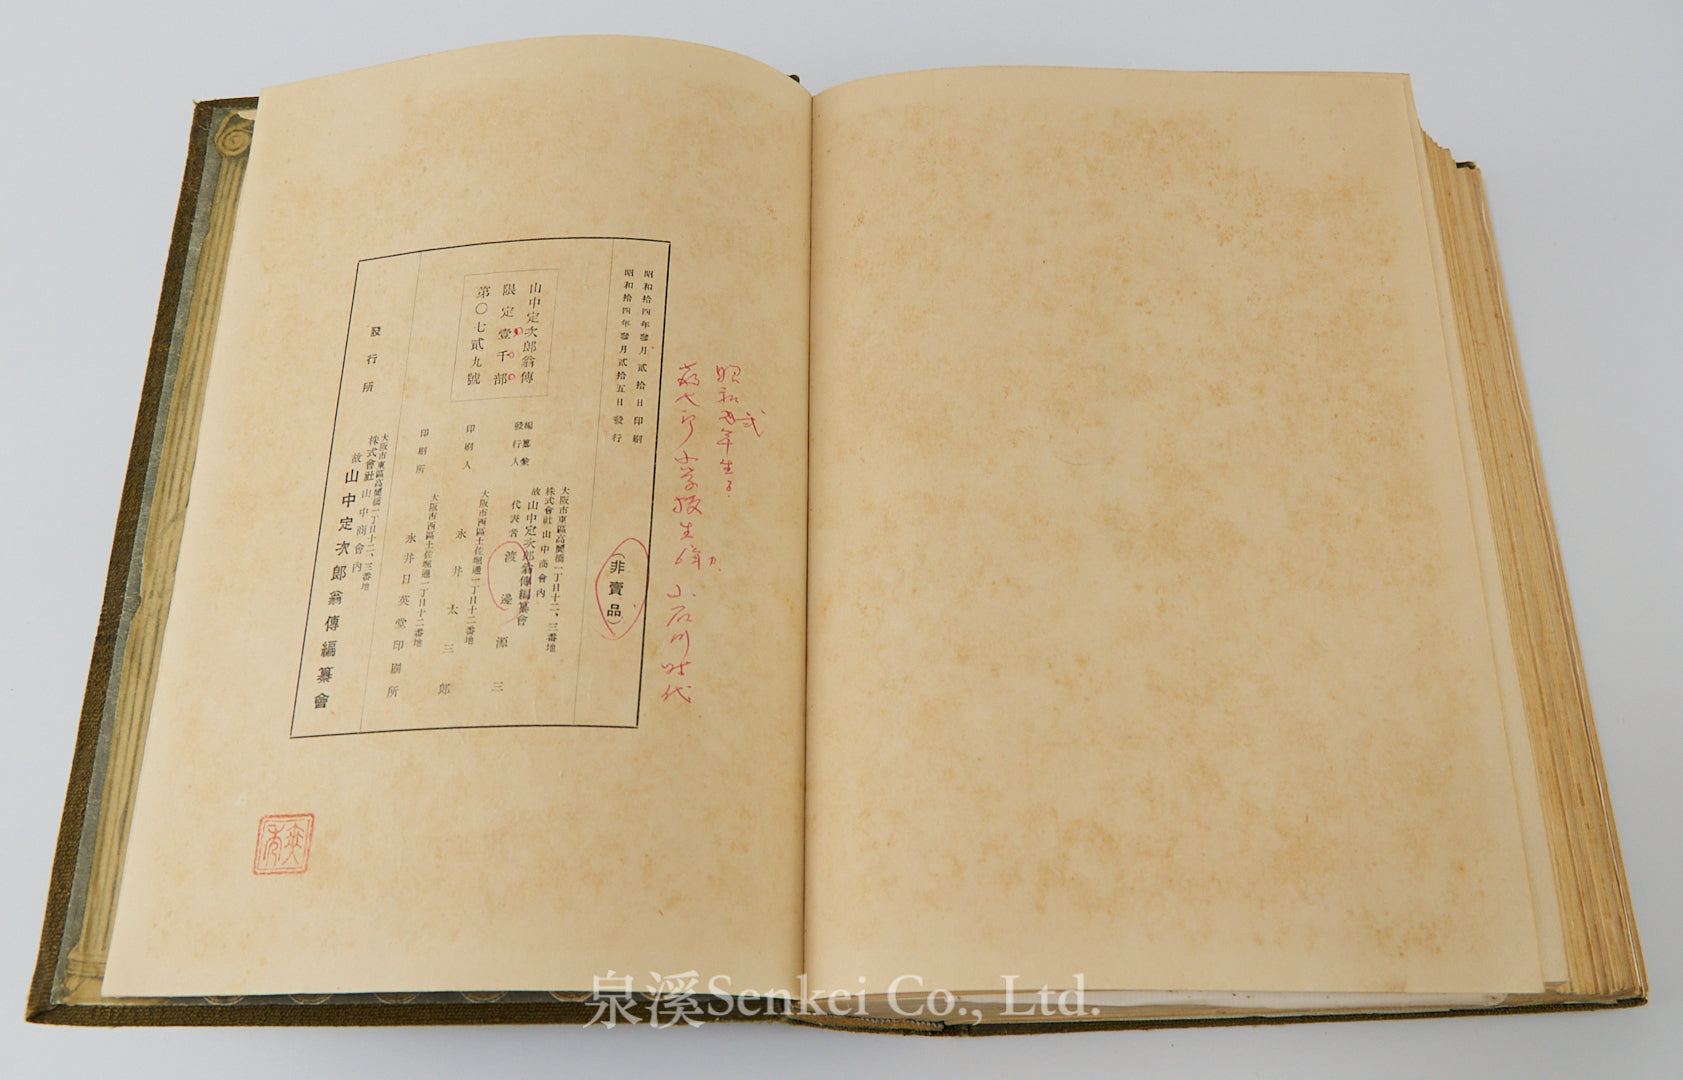 昭和拾四年發月貳拾日印刷
昭和拾四年發月貳拾五日發行
(非賣品)
山中定次郎翁傳
限定壹千部
第〇七貳九號
編纂兼
發行人
大阪市東區高麗橋一丁目十二、三番地
株式會社山中商會內
故山中定次郎翁傳編纂會
代表者 渡邊源三
印刷人
大阪市西區土佐堀通一丁目十二番地
永井太三郎
印刷所
大阪市西區土佐堀通一丁目十二番地
永井日英堂印刷所
發行所
大阪市東區高麗橋一丁目十二、三番地
株式會社山中商會內
故山中定次郎翁傳編纂會
昭和弐年生
小学校生
小石川時代
泉溪Senkei Co., Ltd.